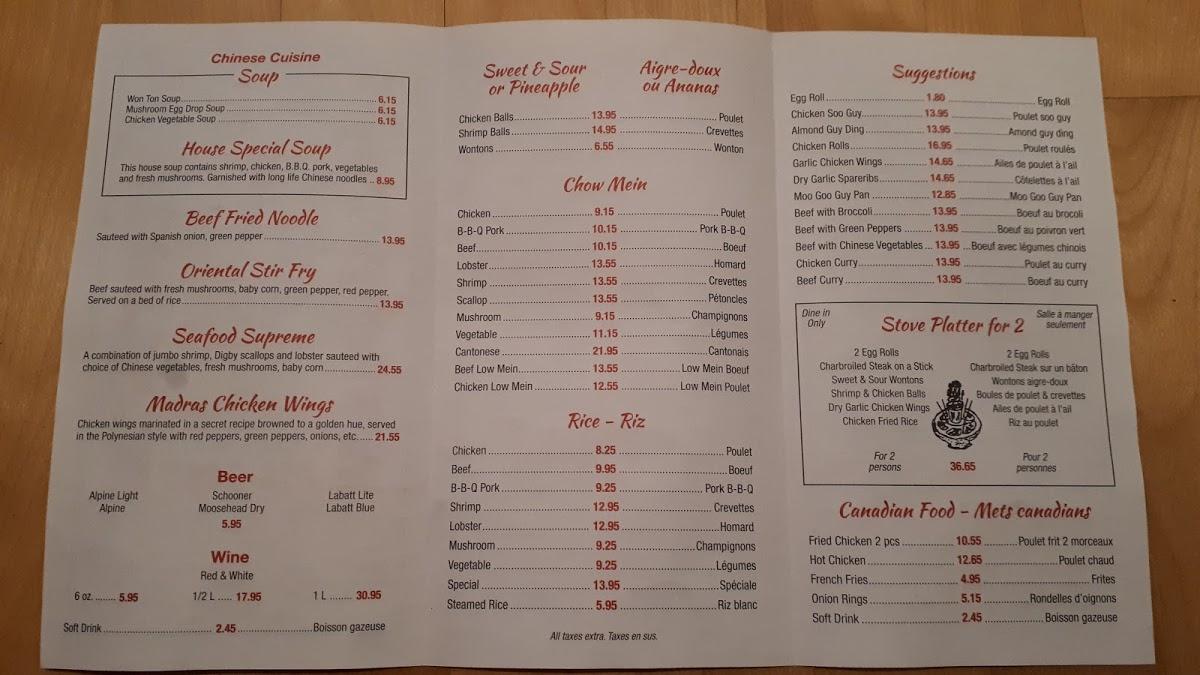 Chinese Cuisine
Soup
Won Ton Soup 6.15
Mushroom Egg Drop Soup 6.15
Chicken Vegetable Soup 6.15
House Special Soup
This house soup contains shrimp, chicken, B.B.Q. pork, vegetables
and fresh mushrooms. Garnished with long life Chinese noodles .. 8.95
Beef Fried Noodle
Sauteed with Spanish onion, green pepper 13.95
Oriental Stir Fry
Beef sauteed with fresh mushrooms, baby corn, green pepper, red pepper.
Served on a bed of rice 13.95
Seafood Supreme
A combination of jumbo shrimp, Digby scallops and lobster sauteed with
choice of Chinese vegetables, fresh mushrooms, baby corn 24.55
Madras Chicken Wings
Chicken wings marinated in a secret recipe browned to a golden hue, served
in the Polynesian style with red peppers, green peppers, onions, etc. 21.55
Beer
Alpine Light Schooner Labatt Lite
Alpine Moosehead Dry Labatt Blue
5.95
Wine
Red & White
6 oz. 5.95 1/2 L 17.95 1 L 30.95
Soft Drink 2.45 Boisson gazeuse
Sweet & Sour Aigre-doux
or Pineapple où Ananas
Chicken Balls 13.95 Poulet
Shrimp Balls 14.95 Crevettes
Wontons 6.55 Wonton
Chow Mein
Chicken 9.15 Poulet
B-B-Q Pork 10.15 Pork B-B-Q
Beef 10.15 Boeuf
Lobster 13.55 Homard
Shrimp 13.55 Crevettes
Scallop 13.55 Pétoncles
Mushroom 9.15 Champignons
Vegetable 11.15 Légumes
Cantonese 21.95 Cantonais
Beef Low Mein 13.55 Low Mein Boeuf
Chicken Low Mein 12.55 Low Mein Poulet
Rice - Riz
Chicken 8.25 Poulet
Beef 9.95 Boeuf
B-B-Q Pork 9.25 Pork B-B-Q
Shrimp 12.95 Crevettes
Lobster 12.95 Homard
Mushroom 9.25 Champignons
Vegetable 9.25 Légumes
Special 13.95 Spéciale
Steamed Rice 5.95 Riz blanc
All taxes extra. Taxes en sus.
Suggestions
Egg Roll 1.80 Egg Roll
Chicken Soo Guy 13.95 Poulet soo guy
Almond Guy Ding 13.95 Amond guy ding
Chicken Rolls 16.95 Poulet roulés
Garlic Chicken Wings 14.65 Ailes de poulet à l'ail
Dry Garlic Spareribs 14.65 Côtelettes à l'ail
Moo Goo Guy Pan 12.85 Moo Goo Guy Pan
Beef with Broccoli 13.95 Boeuf au brocoli
Beef with Green Peppers 13.95 Boeuf au poivron vert
Beef with Chinese Vegetables 13.95 Boeuf avec légumes chinois
Chicken Curry 13.95 Poulet au curry
Beef Curry 13.95 Boeuf au curry
Dine in Salle à manger
Only seulement
Stove Platter for 2
2 Egg Rolls 2 Egg Rolls
Charbroiled Steak on a Stick Charbroiled Steak sur un bâton
Sweet & Sour Wontons Wontons aigre-doux
Shrimp & Chicken Balls Boules de poulet & crevettes
Dry Garlic Chicken Wings Ailes de poulet à l'ail
Chicken Fried Rice Riz au poulet
For 2 Pour 2
persons 36.65 personnes
Canadian Food - Mets canadians
Fried Chicken 2 pcs 10.55 Poulet frit 2 morceaux
Hot Chicken 12.65 Poulet chaud
French Fries 4.95 Frites
Onion Rings 5.15 Rondelles d'oignons
Soft Drink 2.45 Boisson gazeuse